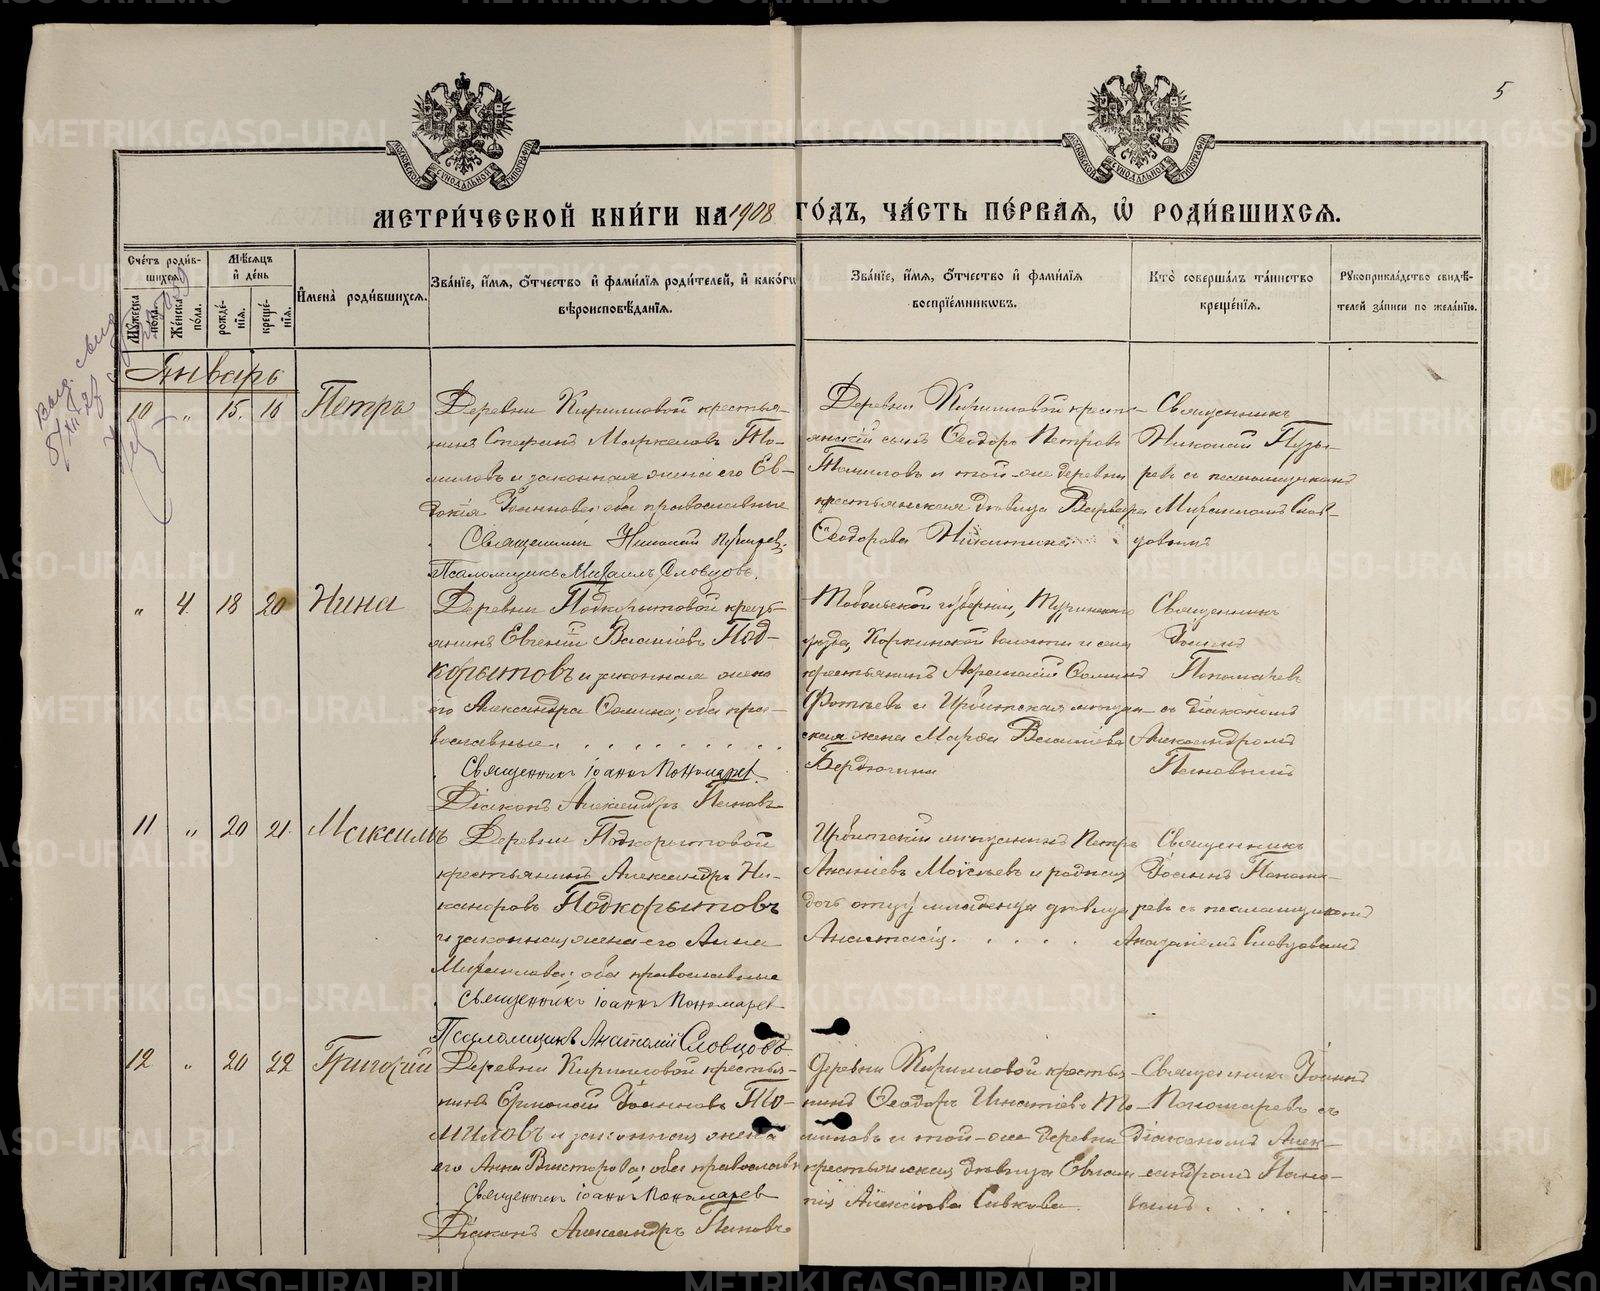 5
МОСКОВСКОЙ СѴНОДАЛЬНОЙ ТИПОГРАФІИ
МОСКОВСКОЙ СѴНОДАЛЬНОЙ ТИПОГРАФІИ
МЕТРИ́ЧЕСКОЙ КНИ́ГИ НА 1908 ГО́ДЪ, ЧА́СТЬ ПЕ́РВАЯ, Ѽ РОДИ́ВШИХСЯ.
Сче́тъ роди́в-
шихся.
Мꙋ́жеска
по́ла.
Же́нска
по́ла.
Мѣ́сяцъ
и҆ де́нь
рожде́-
нїя.
креще́-
нїя.
И҆мена̀ роди́вшихся.
Зва́нїе, и҆́мя, ѻ҆́тчество и҆ фами́лїя роди́телей, и҆ како́гѡ
вѣроисповѣ́данїя.
Зва́нїе, и҆́мя, ѻ҆́тчество и҆ фами́лїя
воспрїе́мникѡвъ.
Кто̀ соверша́лъ та́инство
креще́нїя.
Рꙋкоприкла́дство свидѣ́-
телей за́писи по жела́нїю.
Январь
10 „ 15. 16 Петръ
Деревни Кирилловой крестья-
нинъ Стефанъ Маркеловъ То-
миловъ и законная жена его Ев-
докія Іоаннова, оба православные
Священникъ Николай Пузырев.
Псаломщикъ Михаилъ Словцовъ.
Деревни Кирилловой кресть-
янскій сынъ Ѳеодоръ Петровъ
Томиловъ и той-же деревни
крестьянская дѣвица Варвара
Ѳеодорова Никитина
Священникъ
Николай Пузы-
ревъ съ псаломщикомъ
Михаиломъ Слов-
цовымъ
„ 4. 18 20 Нина
Деревни Подкорытовой кресть-
янинъ Евгеній Василіевъ Под-
корытовъ и законная жена
его Александра Ѳомина; оба пра-
вославные. . . . . . . . .
Священникъ Іоаннъ Пономарев
Діаконъ Александръ Пановъ
Тобольской губерніи, Туринскаго
уѣзда, Коркинской волости и села
крестьянинъ Ѳоминъ
Фотіевъ и Ирбитская мѣщан-
ская жена Марѳа Василіева
Бердюгина
Священникъ
Іоаннъ
Пономаревъ
съ діакономъ
Александромъ
Пановымъ
11 „ 20 21. Максимъ
Деревни Подкорытовой
крестьянинъ Александръ Ни-
каноровъ Подкорытовъ
и законная жена его Анна
Михаилова; оба православные
Священникъ Іоаннъ Пономарев
Псаломщикъ Анатолій Словцовъ
Ирбитскій мѣщанинъ Петръ
Ананіевъ Моѵсѣевъ и родная
дочь отцу младенца дѣвица
Анастасія. . . . .
Священникъ
Іоаннъ Понома-
ревъ съ псаломщикомъ
Анатоліемъ Словцовымъ
12 „ 20 22 Григорій
Деревни Кирилловой крестья-
нинъ Ермолай Іоанновъ То-
миловъ и законная жена
его Анна Викторова; оба православн
Священникъ Іоаннъ Пономарев
Діаконъ Александръ Пановъ
Деревни Кирилловой крестья-
нинъ Ѳеодоръ Игнатіевъ То-
миловъ и той-же деревни
крестьянская дѣвица Евлам-
пія Алексіева Сивкова.
Священникъ Іоаннъ
Пономаревъ съ
діакономъ Алек-
сандромъ Пано-
вымъ. . . .
METRIKI.GASO-URAL.RU